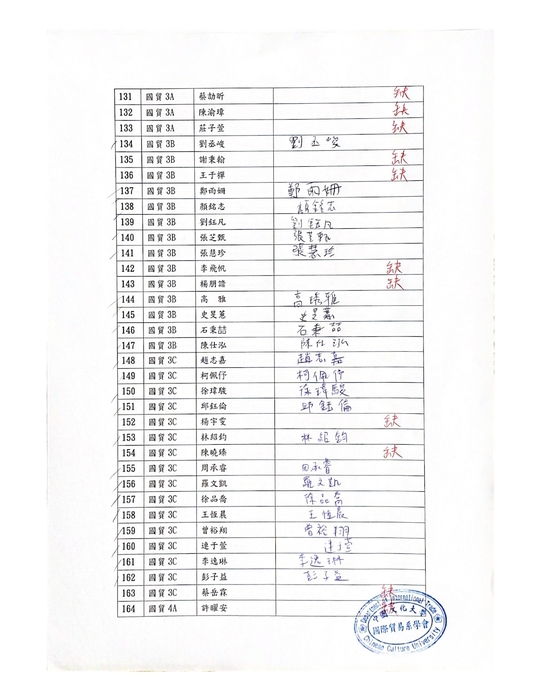 131 國貿 3A 蔡勛昕 缺
132 國貿 3A 陳渝瑋 缺
133 國貿 3A 莊子萱 缺
134 國貿 3B 劉丞峻 劉丞峻
135 國貿 3B 謝秉翰 缺
136 國貿 3B 王子樺 缺
137 國貿 3B 鄭雨姍 鄭雨姍
138 國貿 3B 顏銘志 顏銘志
139 國貿 3B 劉鈺凡 劉鈺凡
140 國貿 3B 張芝甄 張芝甄
141 國貿 3B 張慧珍 張慧珍
142 國貿 3B 李飛帆 缺
143 國貿 3B 楊朋諳 缺
144 國貿 3B 高 雅 高 雅
145 國貿 3B 史旻蕙 史旻蕙
146 國貿 3B 石秉喆 石秉喆
147 國貿 3B 陳仕泓 陳仕泓
148 國貿 3C 趙志嘉 趙志嘉
149 國貿 3C 柯佩伃 柯佩伃
150 國貿 3C 徐瑋駿 徐瑋駿
151 國貿 3C 邱鈺倫 邱鈺倫
152 國貿 3C 楊宇雯 缺
153 國貿 3C 林紹鈞 林紹鈞
154 國貿 3C 陳曉臻 缺
155 國貿 3C 周承睿 周承睿
156 國貿 3C 羅文凱 羅文凱
157 國貿 3C 徐品喬 徐品喬
158 國貿 3C 王恆晨 王恆晨
159 國貿 3C 曾裕翔 曾裕翔
160 國貿 3C 連于萱 連于萱
161 國貿 3C 李逸琳 李逸琳
162 國貿 3C 彭子益 彭子益
163 國貿 3C 蔡岳霖 缺
164 國貿 4A 許曜安
中國文化大學
國際貿易系學會
Chinese Culture University